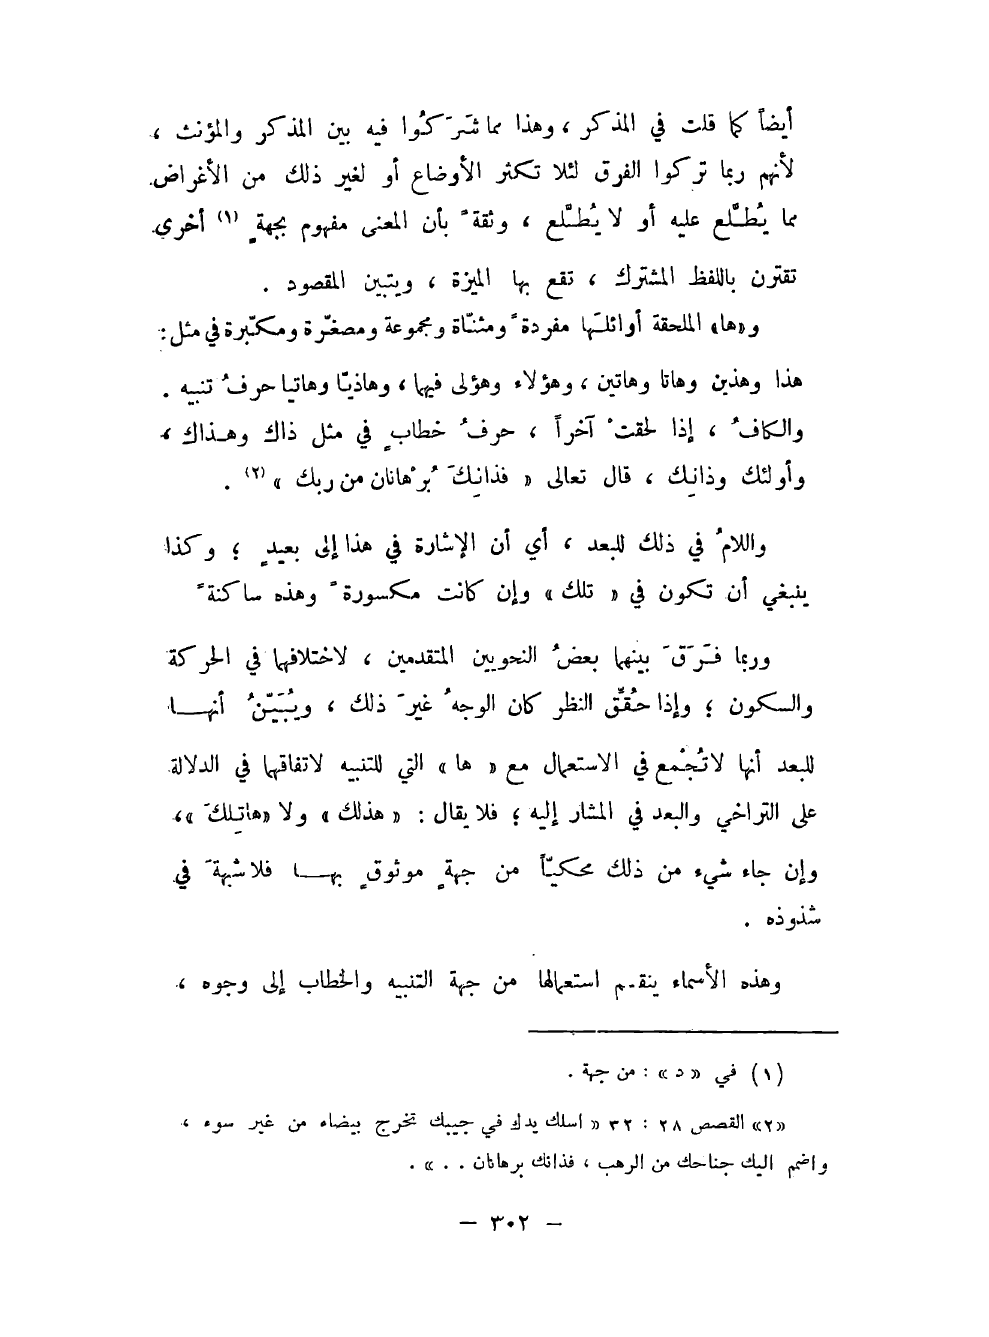 أيضاً كما قلت في المذكر ، وهذا مما شَرَكُوا فيه بين المذكر والمؤنث ،
لأنهم ربما تركوا الفرق لئلا تكثر الأوضاع أو لغير ذلك من الأغراض
مما يُطَّلع عليه أو لا يُطَّلع ، وثقةً بأن المعنى مفهوم بجهةٍ (١) أخرى
تقترن باللفظ المشترك ، تقع بها الميزة ، ويتبين المقصود .
و«ها» الملحقة أوائلَها مفردةً ومثنّاة ومجموعة ومصغّرة ومكبّرة في مثل :
هذا وهذين وهاتا وهاتين ، وهؤلاء وهؤلى فيها ، وهاذيّا وهاتيا حرفُ تنبيه .
والكافُ ، إذا لحقتْ آخراً ، حرفُ خطابٍ في مثل ذاك وهذاك ،
وأولئك وذانِك ، قال تعالى « فذانِكَ بُرْهانان من ربك » (٢) .
واللامُ في ذلك للبعد ، أي أن الإشارة في هذا إلى بعيدٍ ؛ وكذا
ينبغي أن تكون في « تلك » وإن كانت مكسورةً وهذه ساكنةً
وربما فَرَقَ بينهما بعضُ النحويين المتقدمين ، لاختلافهما في الحركة
والسكون ؛ وإذا حُقِّق النظر كان الوجهُ غيرَ ذلك ، ويُبَيّنُ أنها
للبعد أنها لا تُجْمع في الاستعمال مع « ها » التي للتنبيه لاتفاقهما في الدلالة
على التراخي والبعد في المشار إليه ؛ فلا يقال : « هذلك » ولا «هاتِلكَ »،
وإن جاء شيء من ذلك محكيّاً من جهةٍ موثوقٍ بها فلا شبهةَ في
شذوذه .
وهذه الأسماء ينقسم استعمالها من جهة التنبيه والخطاب إلى وجوه ،
(١) في « د » : من جهة .
«٢» القصص ٢٨ : ٣٢ « اسلك يدك في جيبك تخرج بيضاء من غير سوء ،
واضمم اليك جناحك من الرهب ، فذانك برهانان . . » .
— ٣٠٢ —